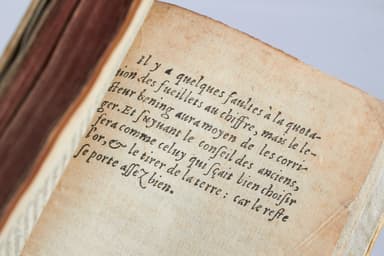 Il y a quelques faultes à la quota-
tion des fueillets au chiffre, mais le le-
cteur bening aura moyen de les corri-
ger. Et suyuant le conseil des anciens,
fera comme celuy qui sçait bien choisir
l'or, & le tirer de la terre: car le reste
se porte assez bien.